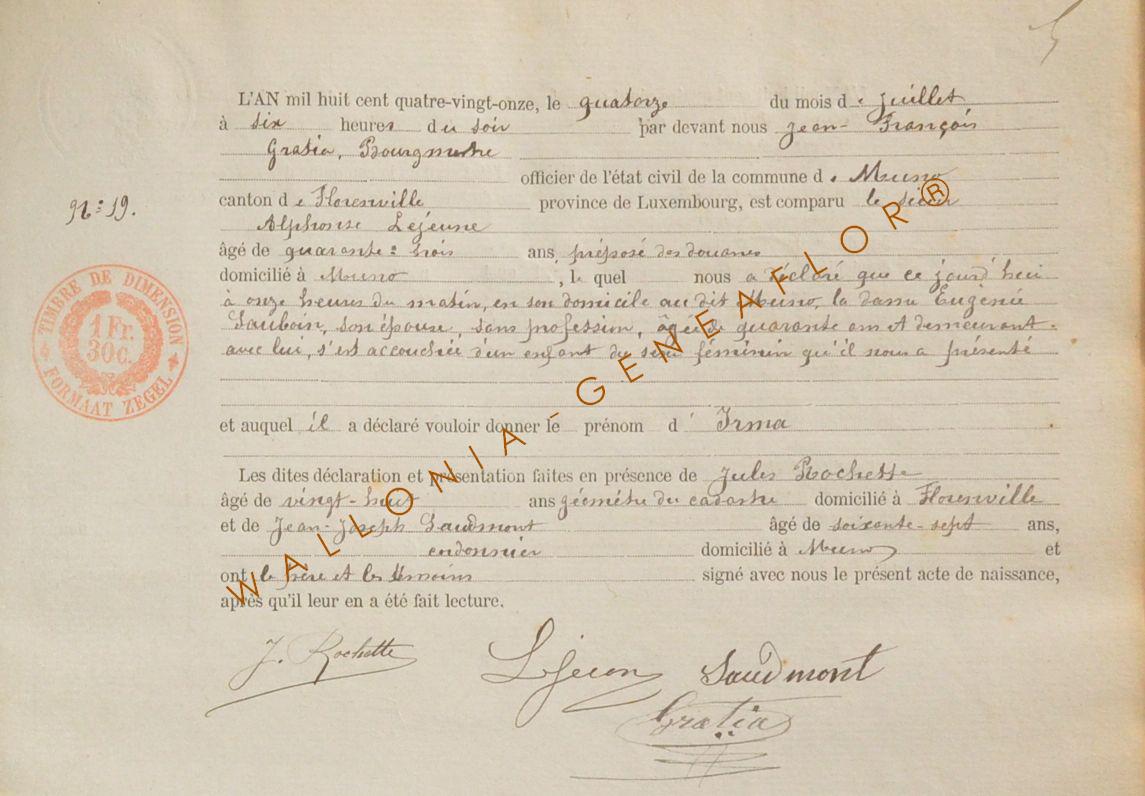 L'AN mil huit cent quatre-vingt-onze, le quatorze du mois de juillet
à six heures du soir par devant nous Jean-François
Gratia, Bourgmestre
officier de l'état civil de la commune de Muno
canton de Florenville province de Luxembourg, est comparu le sieur
Alphonse Lejeune
âgé de quarante-trois ans, préposé des douanes
domicilié à Muno, lequel nous a déclaré que ce jourd'hui
à onze heures du matin, en son domicile au dit Muno, la dame Eugénie
son épouse, sans profession, âgée de quarante ans et demeurant
avec lui, s'est accouchée d'un enfant du sexe féminin qu'il nous a présenté
et auquel il a déclaré vouloir donner le prénom d'Irma
Les dites déclaration et présentation faites en présence de Jules Rochette
âgé de vingt-huit ans géomètre du cadastre domicilié à Florenville
et de Jean-Joseph Saudmont âgé de soixante-sept ans,
cordonnier domicilié à Muno et
ont le père et les témoins signé avec nous le présent acte de naissance,
après qu'il leur en a été fait lecture.
N°: 19.
TIMBRE DE DIMENSION
1 Fr.
30c.
FORMAAT ZEGEL
J. Rochette
Lejeune
Saudmont
Gratia
WALLONIA-GENEAFLOR®